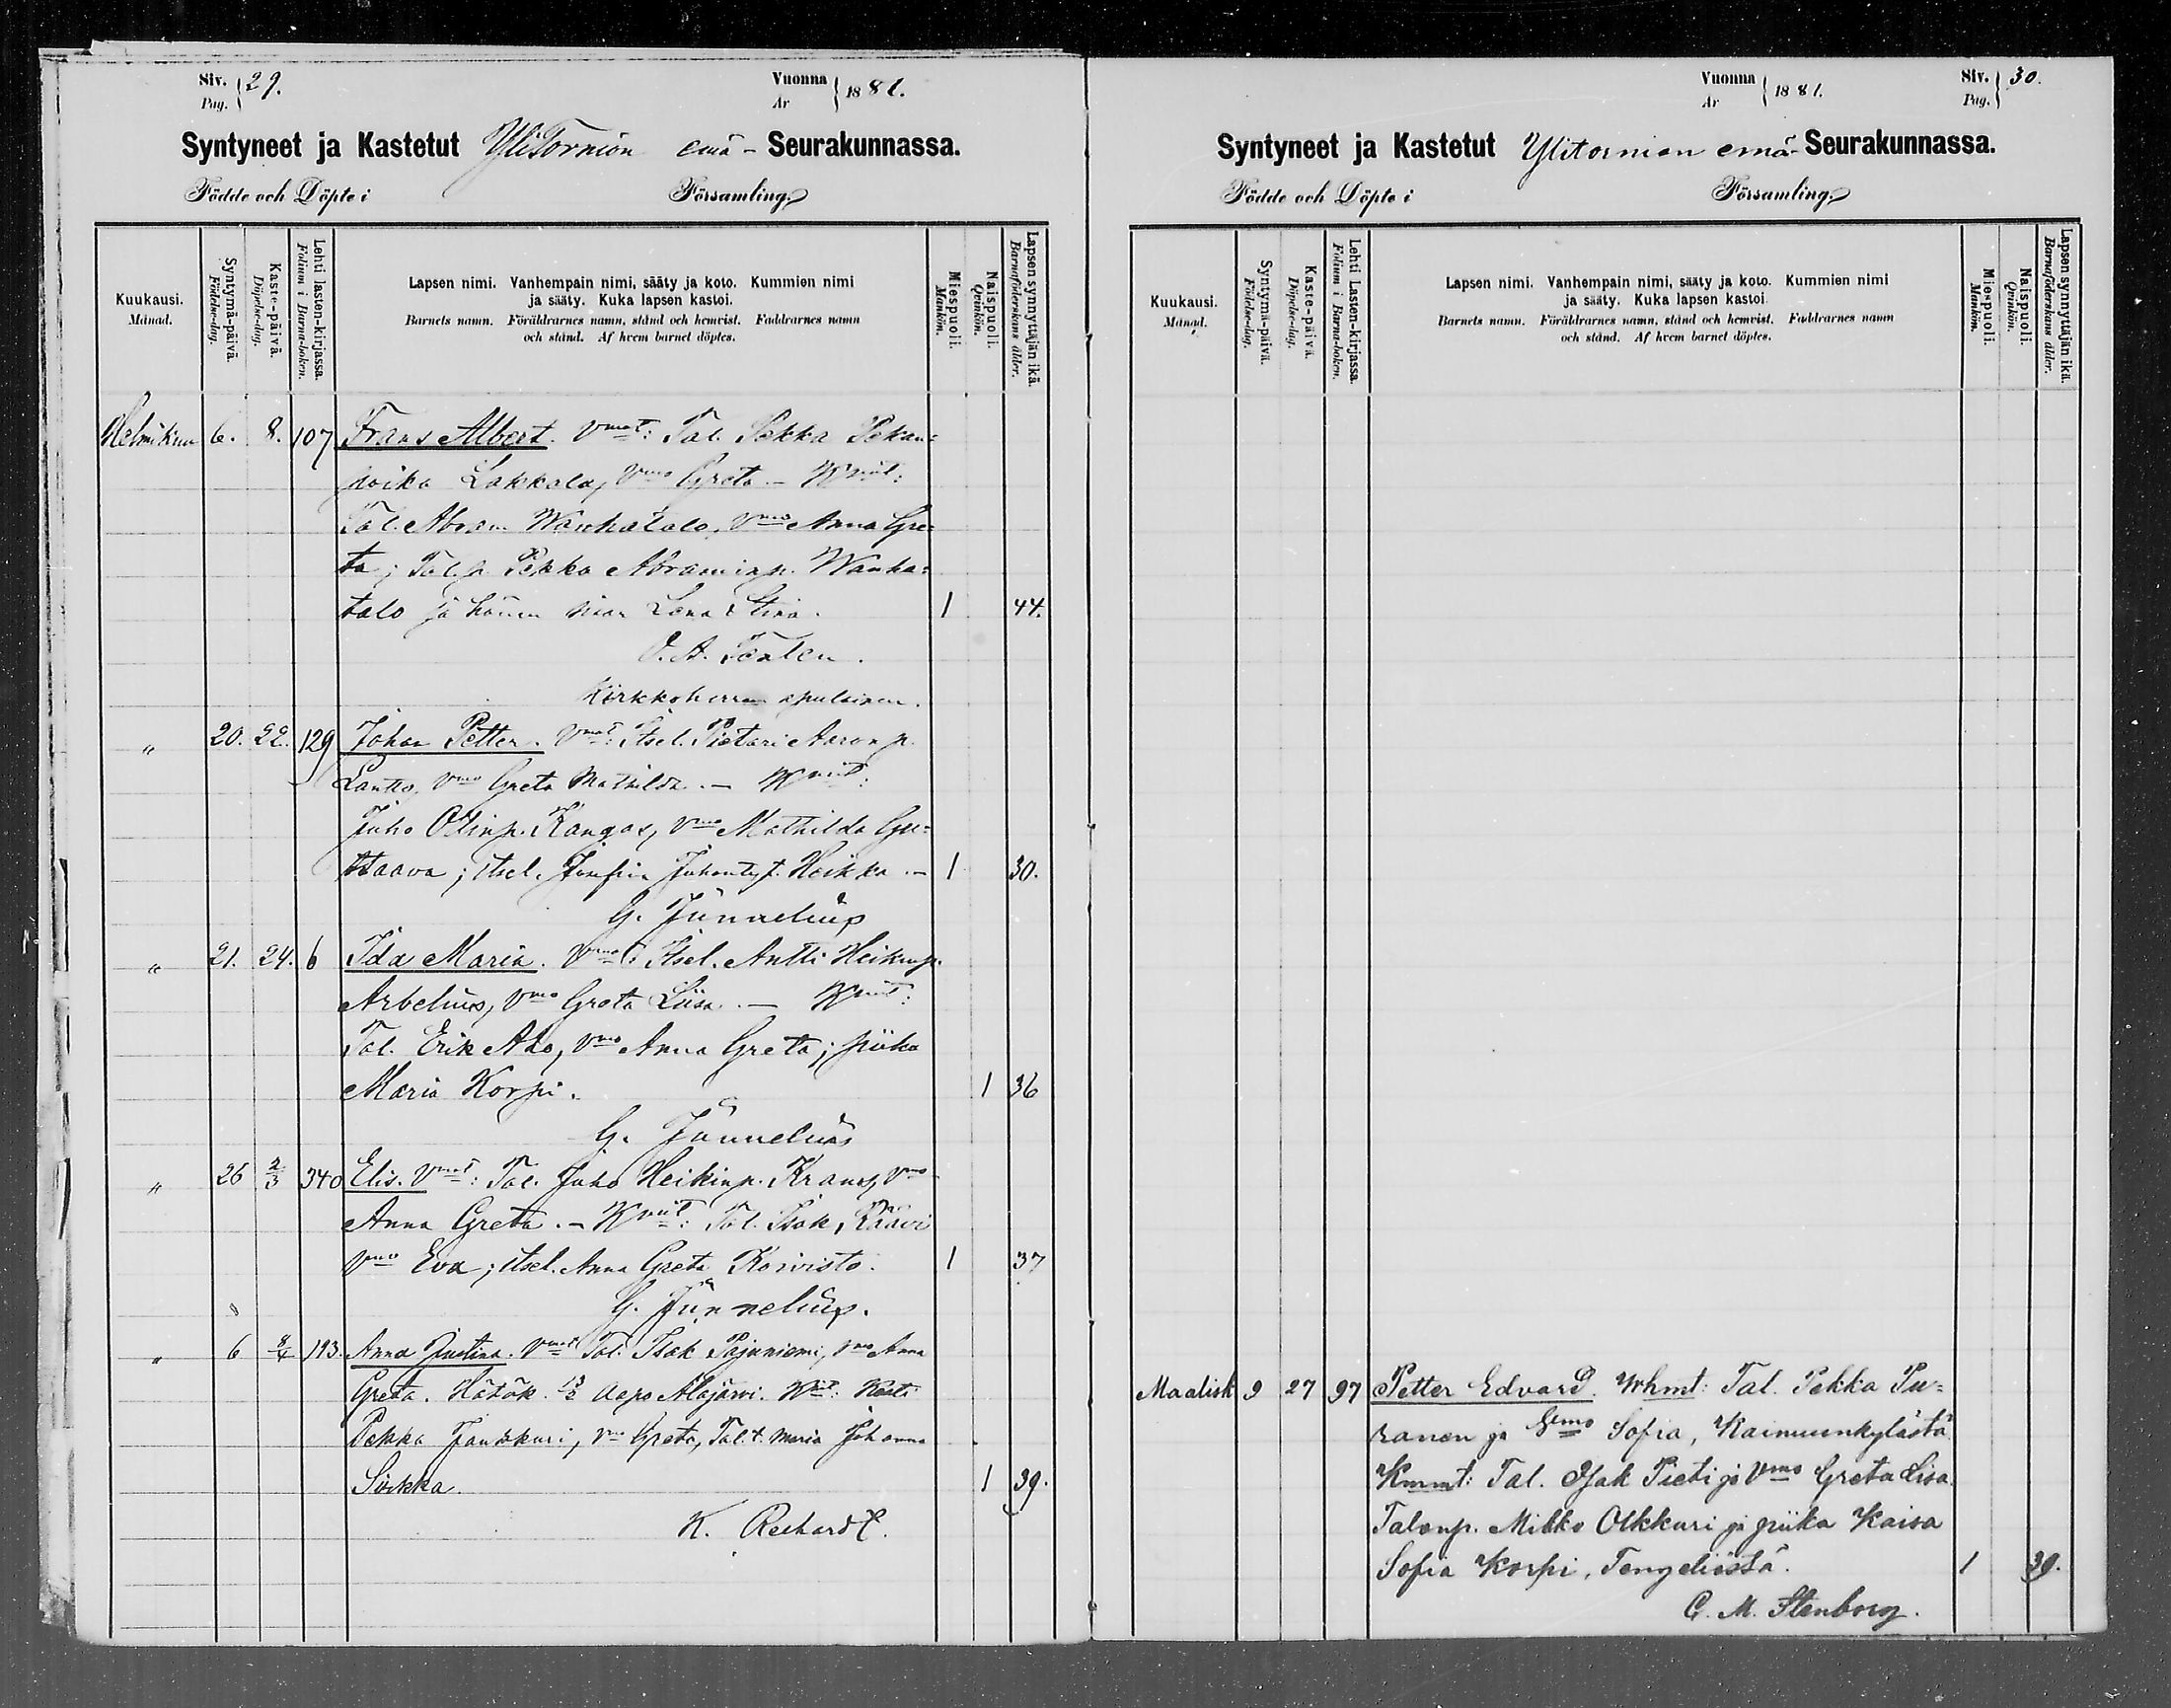 Siv. Pag. 29.
Vuonna År 1881.
Syntyneet ja Kastetut YliTornion emä- Seurakunnassa.
Födde och Döpte i Församling.
Kuukausi. Månad.
Syntymä-päivä. Födelse-dag.
Kaste-päivä. Döpelse-dag.
Lehti lasten-kirjassa. Folium i Barna-boken.
Lapsen nimi. Vanhempain nimi, sääty ja koto. Kummien nimi
ja sääty. Kuka lapsen kastoi.
Barnets namn. Föräldrarnes namn, stånd och hemvist. Faddrarnes namn
och stånd. Af hvem barnet döptes.
Miespuoli. Mankön.
Naispuoli. Qvinkön.
Lapsen synnyttäjän ikä. Barnaföderskans ålder.
Helmikuu 6. 8. 107 Frans Albert. Vmat: Tal. Pekka Pekan=
poika Lakkala, Vmo Greta. – Kmit:
Tal. Abram Wanhatalo, Vmo Anna Gre=
ta; Tal.p. Pekka Abraminp. Wanha=
talo ja hänen Lena Stina. 1 44.
Kirkkoherran apulainen.
" 20. 22. 129 Johan Petter. Vmat: Itsel. Pietari Aaronp.
Lantto, Vmo Greta Mathilda. – Kmit:
Juho Ollinp. Kangas, Vmo Mathilda Gu=
staava; itsel. Juhont. Heikka. – 1 30.
G. Jünnelius
" 21. 24. 6 Ida Maria. Vmat: Itsel. Antti Heikinp.
Arbelius, Vmo Greta Liisa. – Kmit:
Tal. Erik Aho, Vmo Anna Greta; piika
Maria Korpi. 1 36
G. Jünnelius
" 26 2/3 340 Elis. Vmat: Tal. Juho Heikinp. Krans, Vmo
Anna Greta. – Kmit: Tal. Isak Räävi
Vmo Eva; itsel. Anna Greta Koivisto. 1 37
G. Jünnelius.
" 6 8/4 193. Anna Justina. Vmat Tal. Isak Pajuniemi, Vmo Anna
Greta. Hätäk. Aapo Alajärvi. Kmit: Kesti
Pekka Jankkuri, Vmo Greta, Tal.t. Maria Johanna
Siikka. 1 39.
K. Rechardt.
Vuonna År 1881.
Siv. Pag. 30.
Syntyneet ja Kastetut Ylitornion emä- Seurakunnassa.
Födde och Döpte i Församling.
Kuukausi. Månad.
Syntymä-päivä. Födelse-dag.
Kaste-päivä. Döpelse-dag.
Lehti Lasten-kirjassa. Folium i Barna-boken.
Lapsen nimi. Vanhempain nimi, sääty ja koto. Kummien nimi
ja sääty. Kuka lapsen kastoi.
Barnets namn. Föräldrarnes namn, stånd och hemvist. Faddrarnes namn
och stånd. Af hvem barnet döptes.
Miespuoli. Mankön.
Naispuoli. Qvinkön.
Lapsen synnyttäjän ikä. Barnaföderskans ålder.
Maalisk 9 27 97 Petter Edvard. Vhmt: Tal. Pekka Pu=
ranen ja Vmo Sofia, Kainuunkylästä.
Kmmt: Tal. Isak Pieti ja Vmo Greta Lisa.
Talonp. Mikko Olkkuri ja piika Kaisa
Sofia Korpi, Tengeliöstä. 1 39.
C. M. Stenborg.